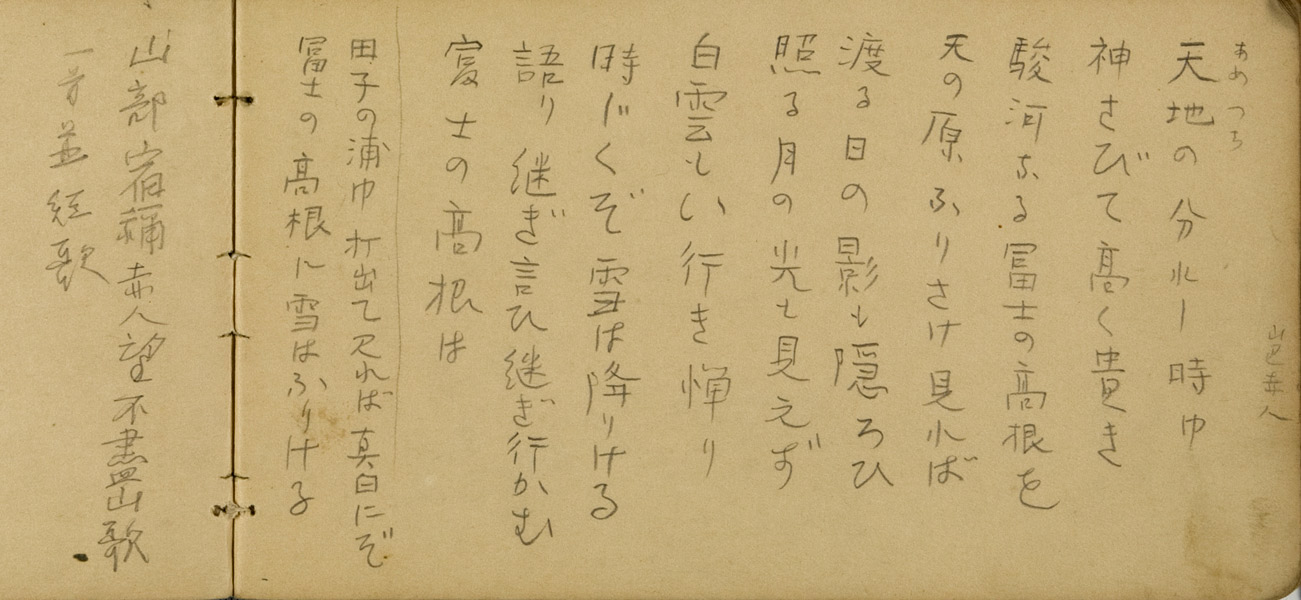 山部赤人
あめつち
天地の分れし時ゆ
神さびて高く貴き
駿河なる富士の高根を
天の原ふりさけ見れば
渡る日の影も隠ろひ
照る月の光も見えず
白雲もい行き憚り
時じくぞ雪は降りける
語り継ぎ言ひ継ぎ行かむ
富士の高根は
田子の浦ゆ打出て見れば真白にぞ
富士の高根に雪はふりける
山部宿祢赤人望不盡山歌
一首並短歌